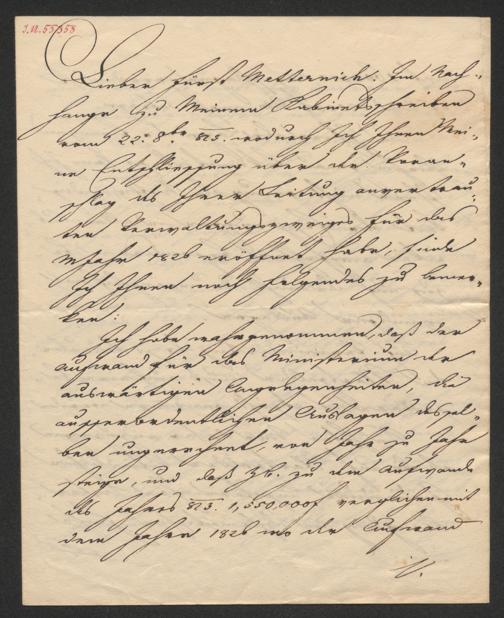 I.N. 55353
Lieber Fürst Metternich! Im Nach-
hange zu Meinem Kabinetsschreiben
vom 22. 8ber 825. wodurch Ich Ihnen Mei-
ne Entschliessung über den Voran-
schlag des Ihrer Leitung anvertrau-
ten Verwaltungszweiges für das
MJahr 1826 eröffnet habe, finde
Ich Ihnen noch folgendes zu bemer-
ken:
Ich habe wahrgenommen, daß der
Aufwand für das Ministerium der
auswärtigen Angelegenheiten, die
ausserordentlichen Auslagen dessel-
ben ungerechnet, von Jahr zu Jahr
steige, und daß zB. zu dem Aufwande
des Jahres 825. 1,550,000f verglichen mit
dem Jahre 1826 wo der Aufwand